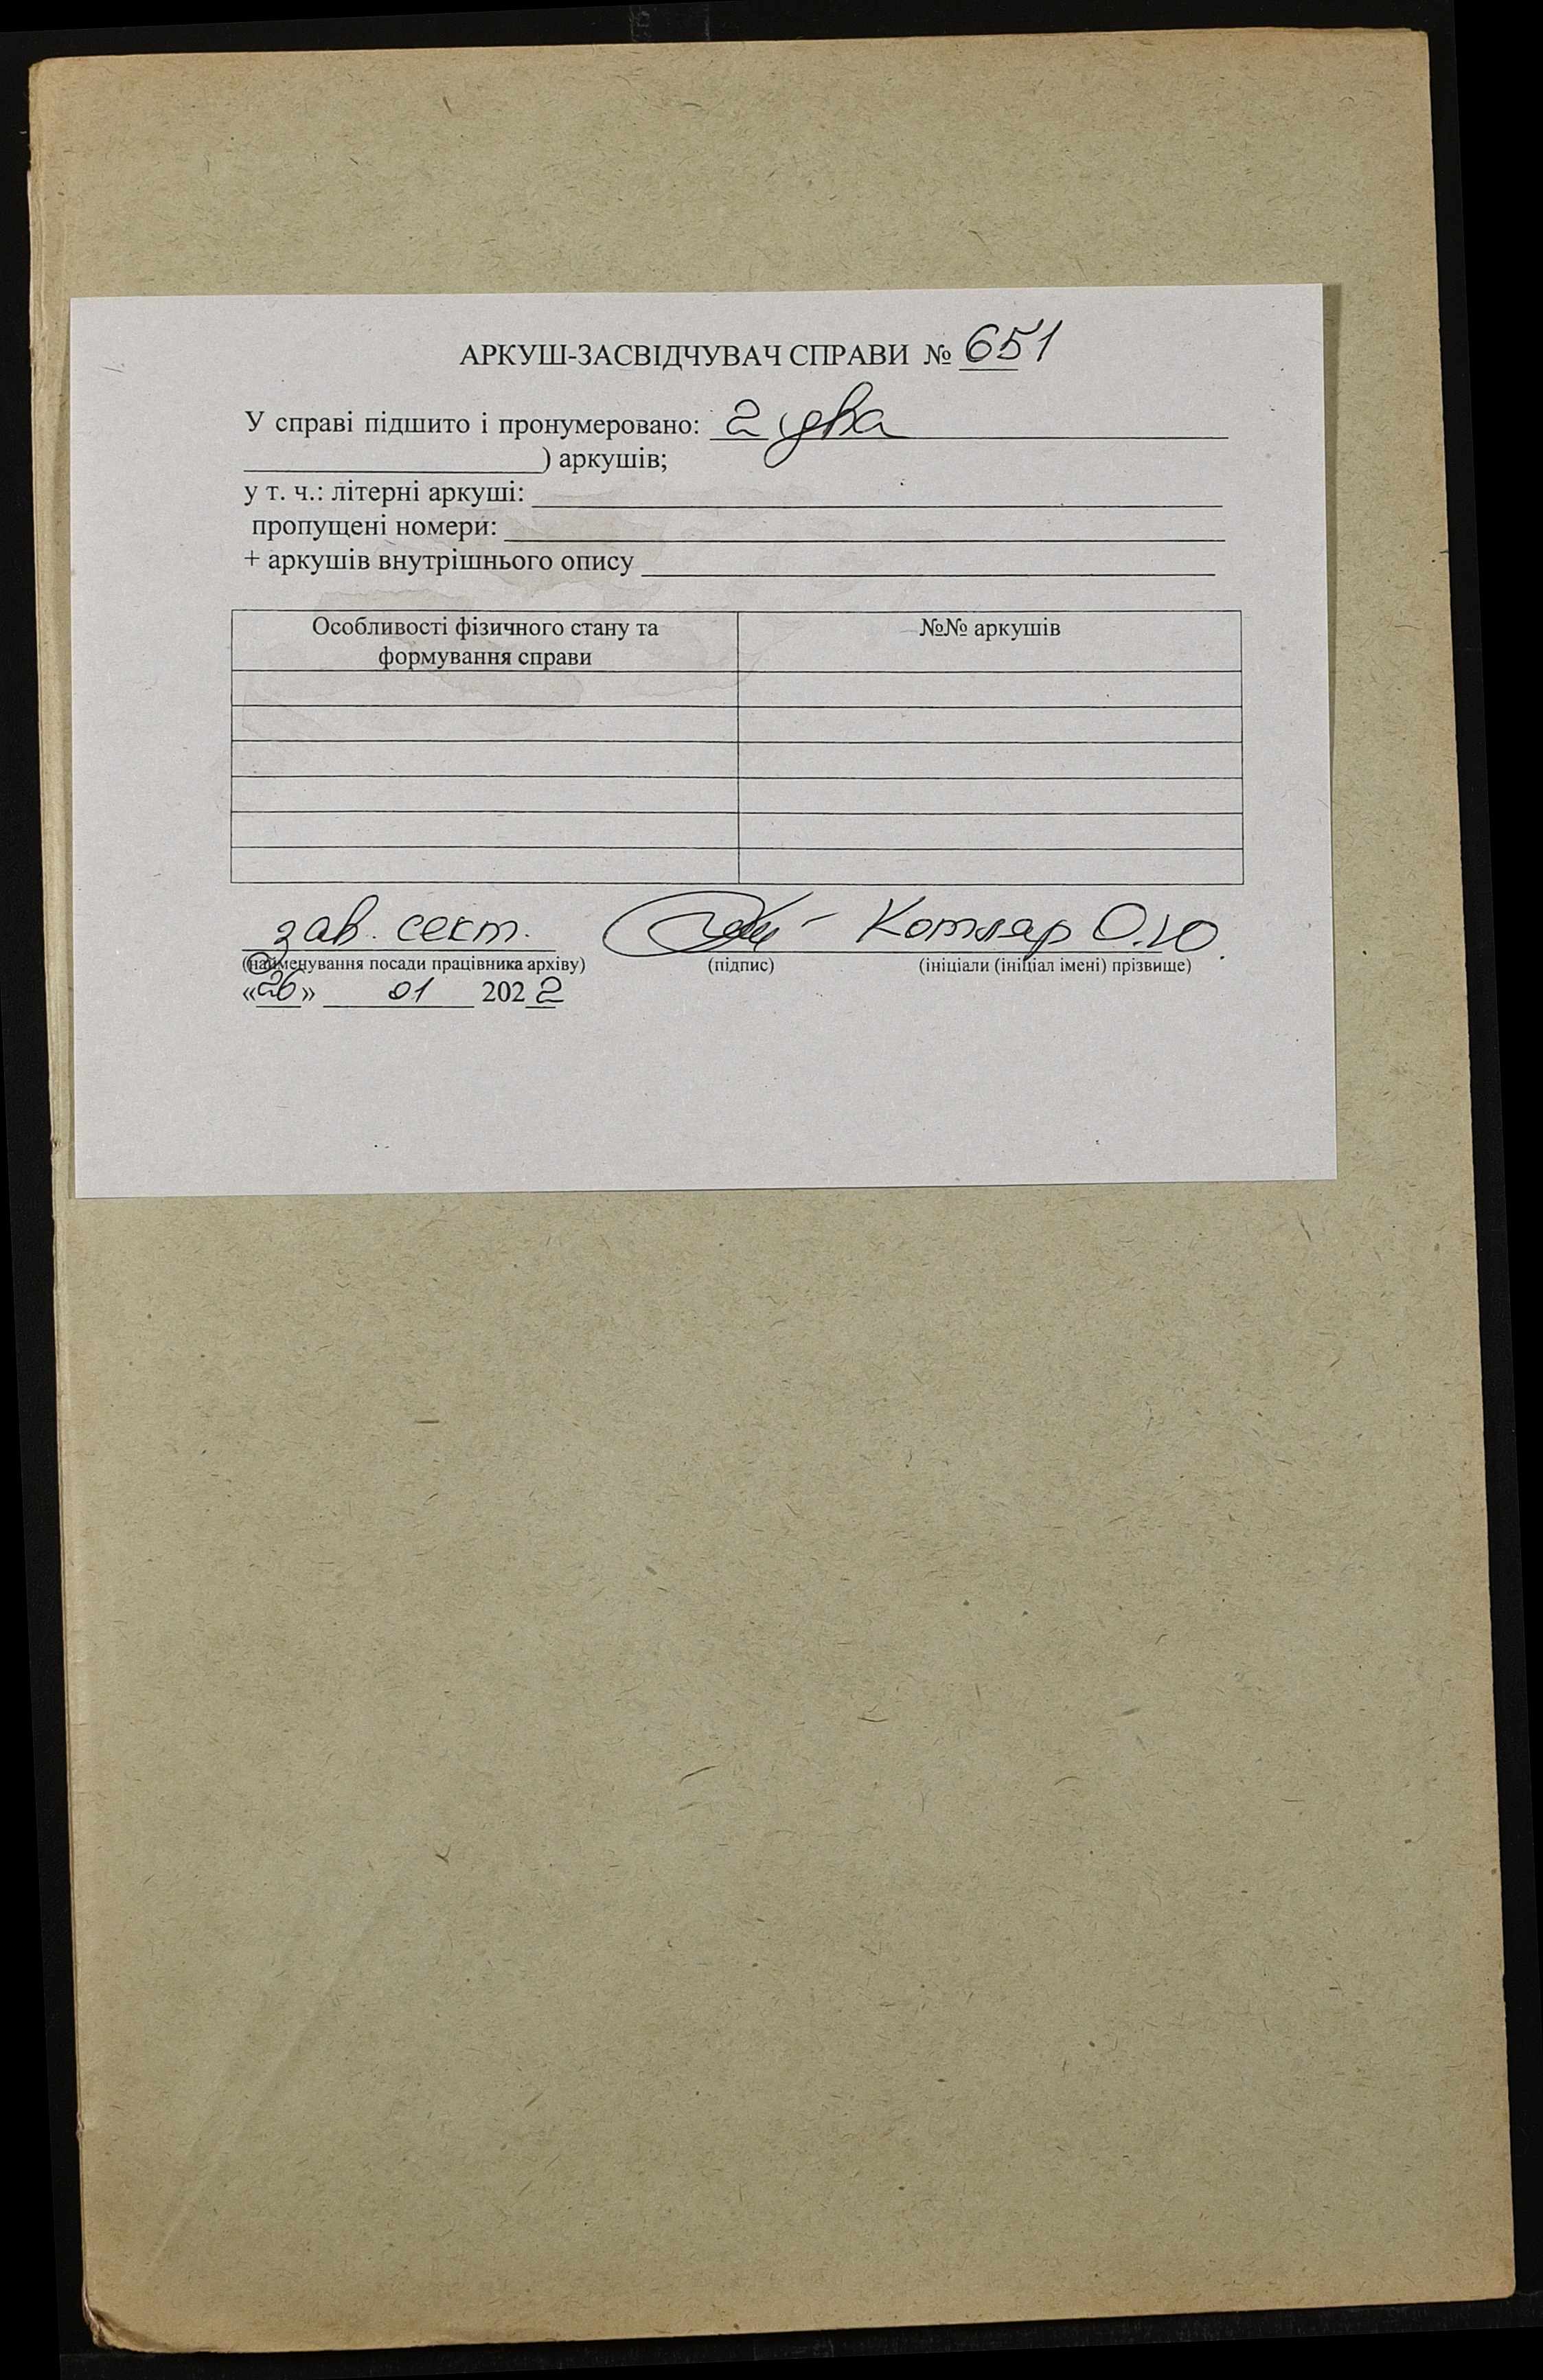 АРКУШ-ЗАСВІДЧУВАЧ СПРАВИ № 651
У справі підшито і пронумеровано: 2 (два
) аркушів;
у т. ч.: літерні аркуші:
пропущені номери:
+ аркушів внутрішнього опису
Особливості фізичного стану та
формування справи
№№ аркушів
зав. сект. Котляр О.Ю.
(найменування посади працівника архіву) (підпис) (ініціали (ініціал імені) прізвище)
«26» 01 2022